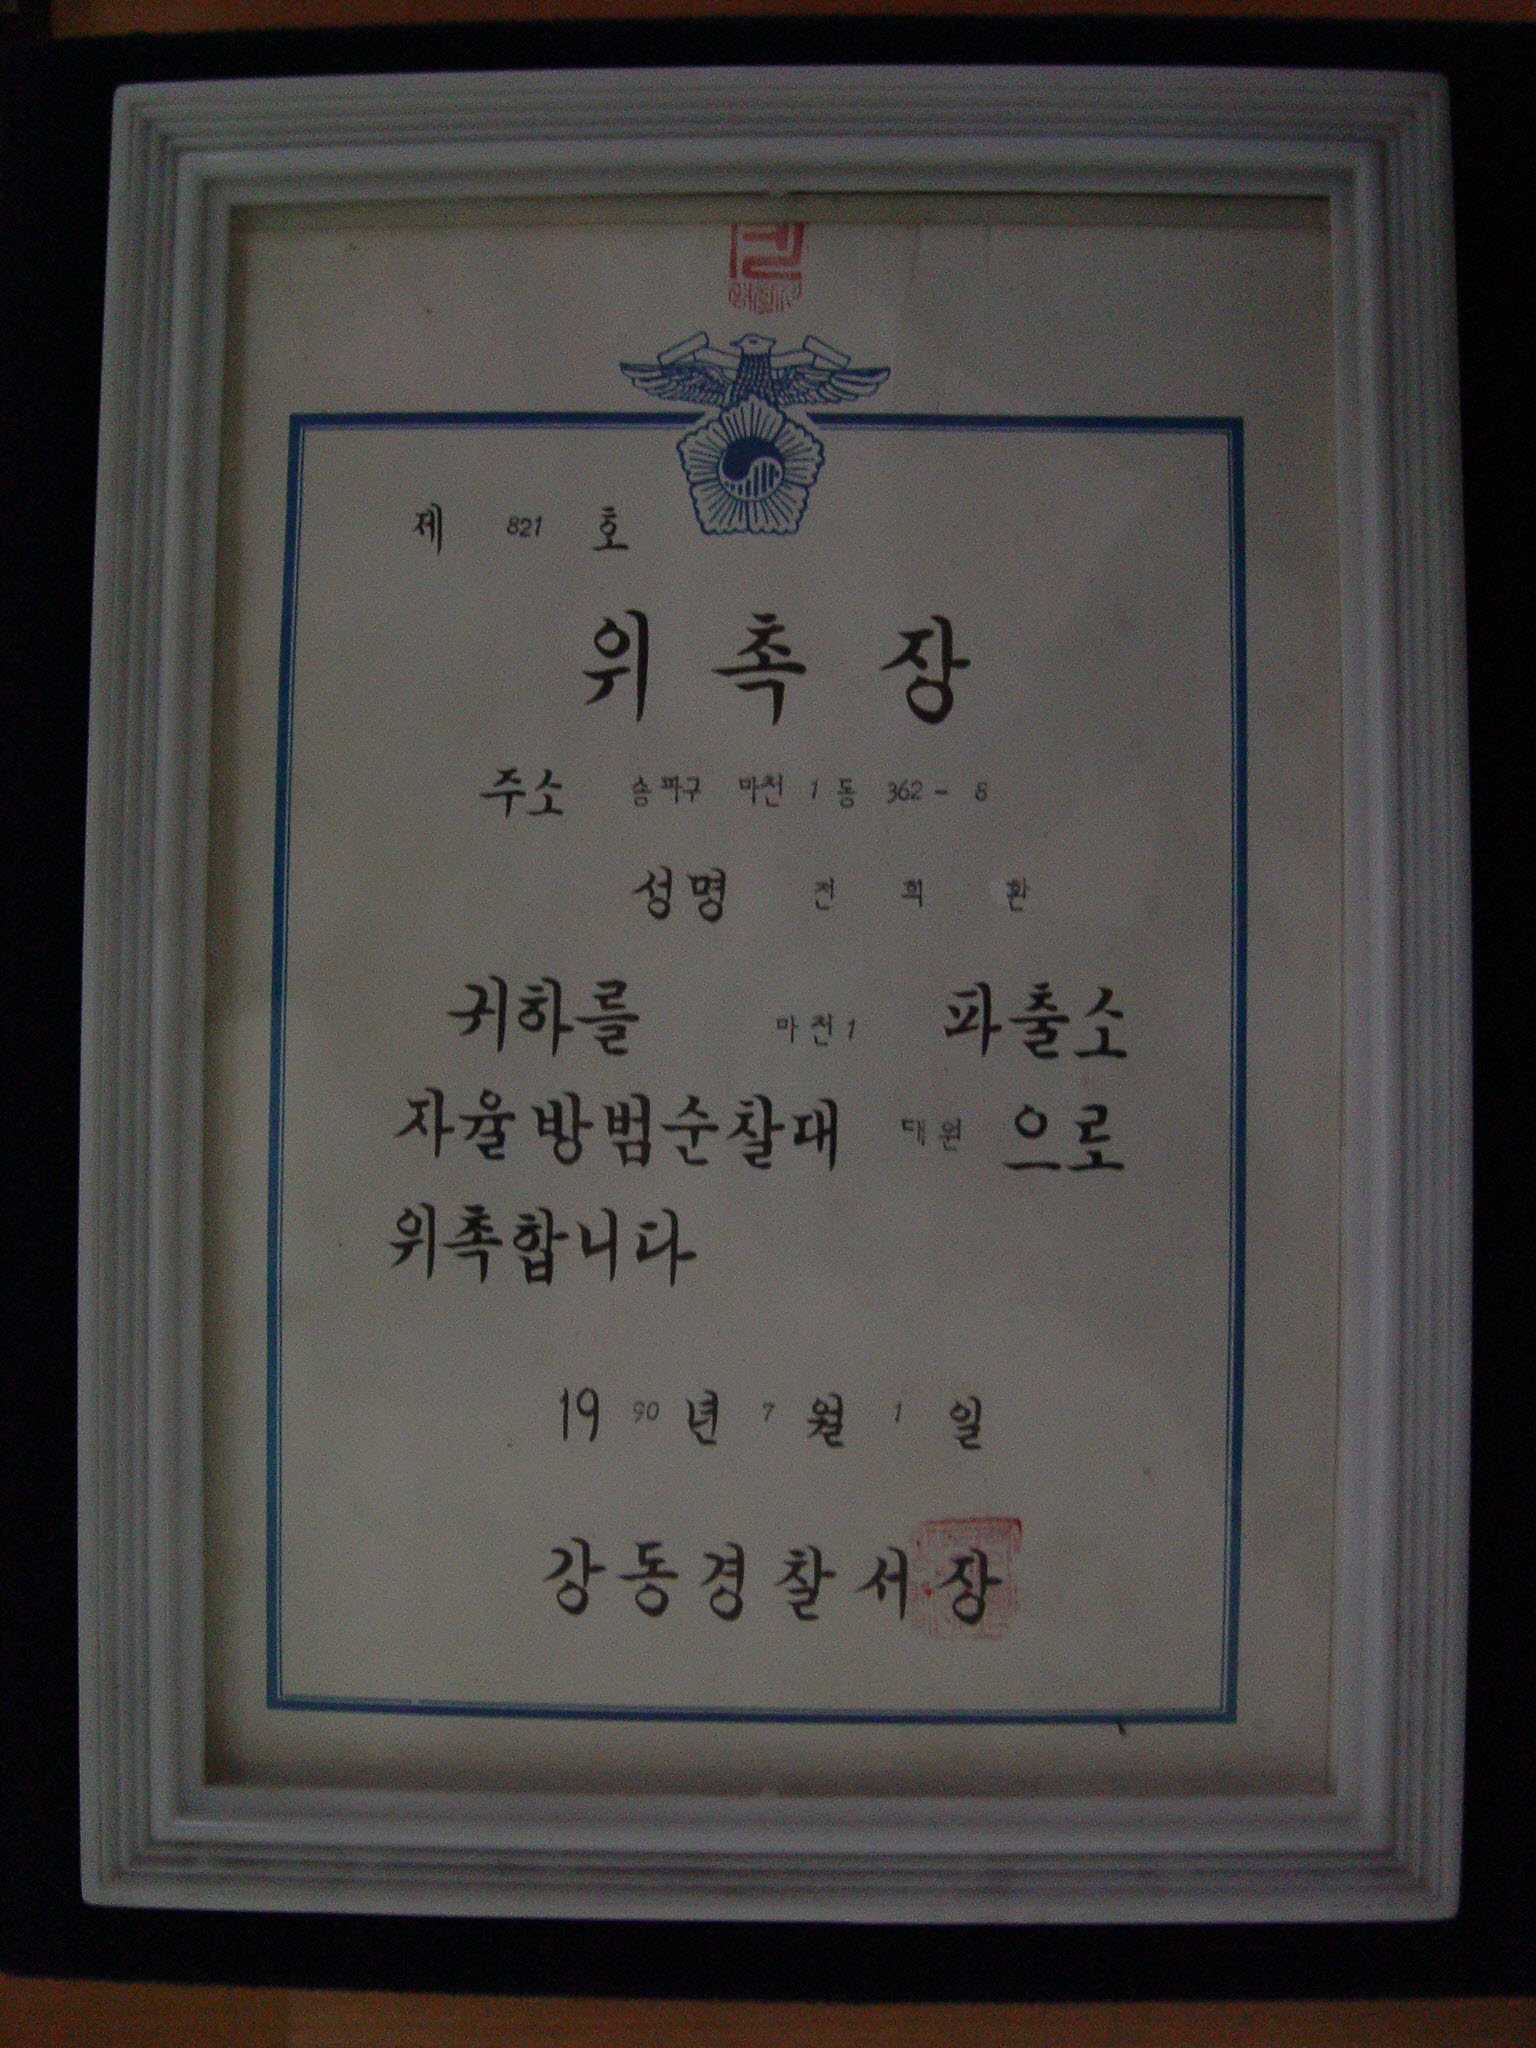 제 821 호
위촉장
주소 송파구 마천 1 동 362 - 8
성명 전 희 환
귀하를 마천1 파출소
자율방범순찰대 대원 으로
위촉합니다
19 90 년 7 월 1 일
강동경찰서장